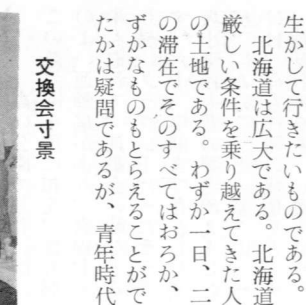 生かして行きたいものである。
北海道は広大である。北海道
厳しい条件を乗り越えてきた人
の土地である。わずか一日、二
の滞在でそのすべてはおろか、
ずかなものもとらえることがで
たかは疑問であるが、青年時代
交換会寸景